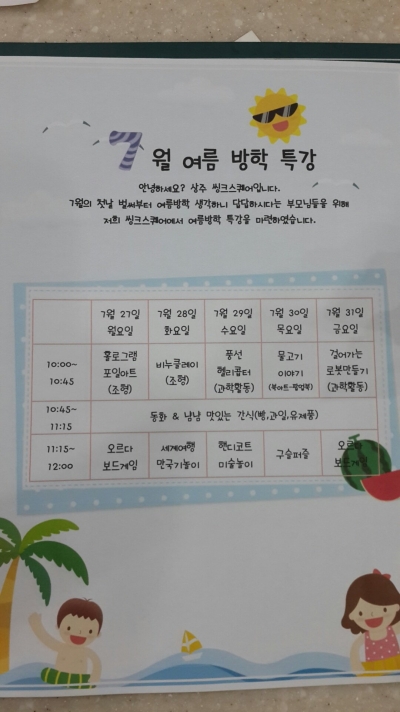 7월 여름 방학 특강
안녕하세요? 상주 씽크스퀘어입니다.
7월의 첫날 벌써부터 여름방학 생각하니 답답하시다는 부모님들을 위해
저희 씽크스퀘어에서 여름방학 특강을 마련하였습니다.
7월 27일 7월 28일 7월 29일 7월 30일 7월 31일
월요일 화요일 수요일 목요일 금요일
10:00~ 홀로그램 비누클레이 풍선 물고기 걸어가는
10:45 포일아트 (조형) 헬리콥터 이야기 로봇만들기
(조형) (과학활동) (북아트-팝업북) (과학활동)
10:45~
11:15 동화 & 냠냠 맛있는 간식(빵,과일,유제품)
11:15~ 오르다 세계여행 핸디코트 구슬퍼즐 오르다
12:00 보드게임 만국기놀이 미술놀이 보드게임